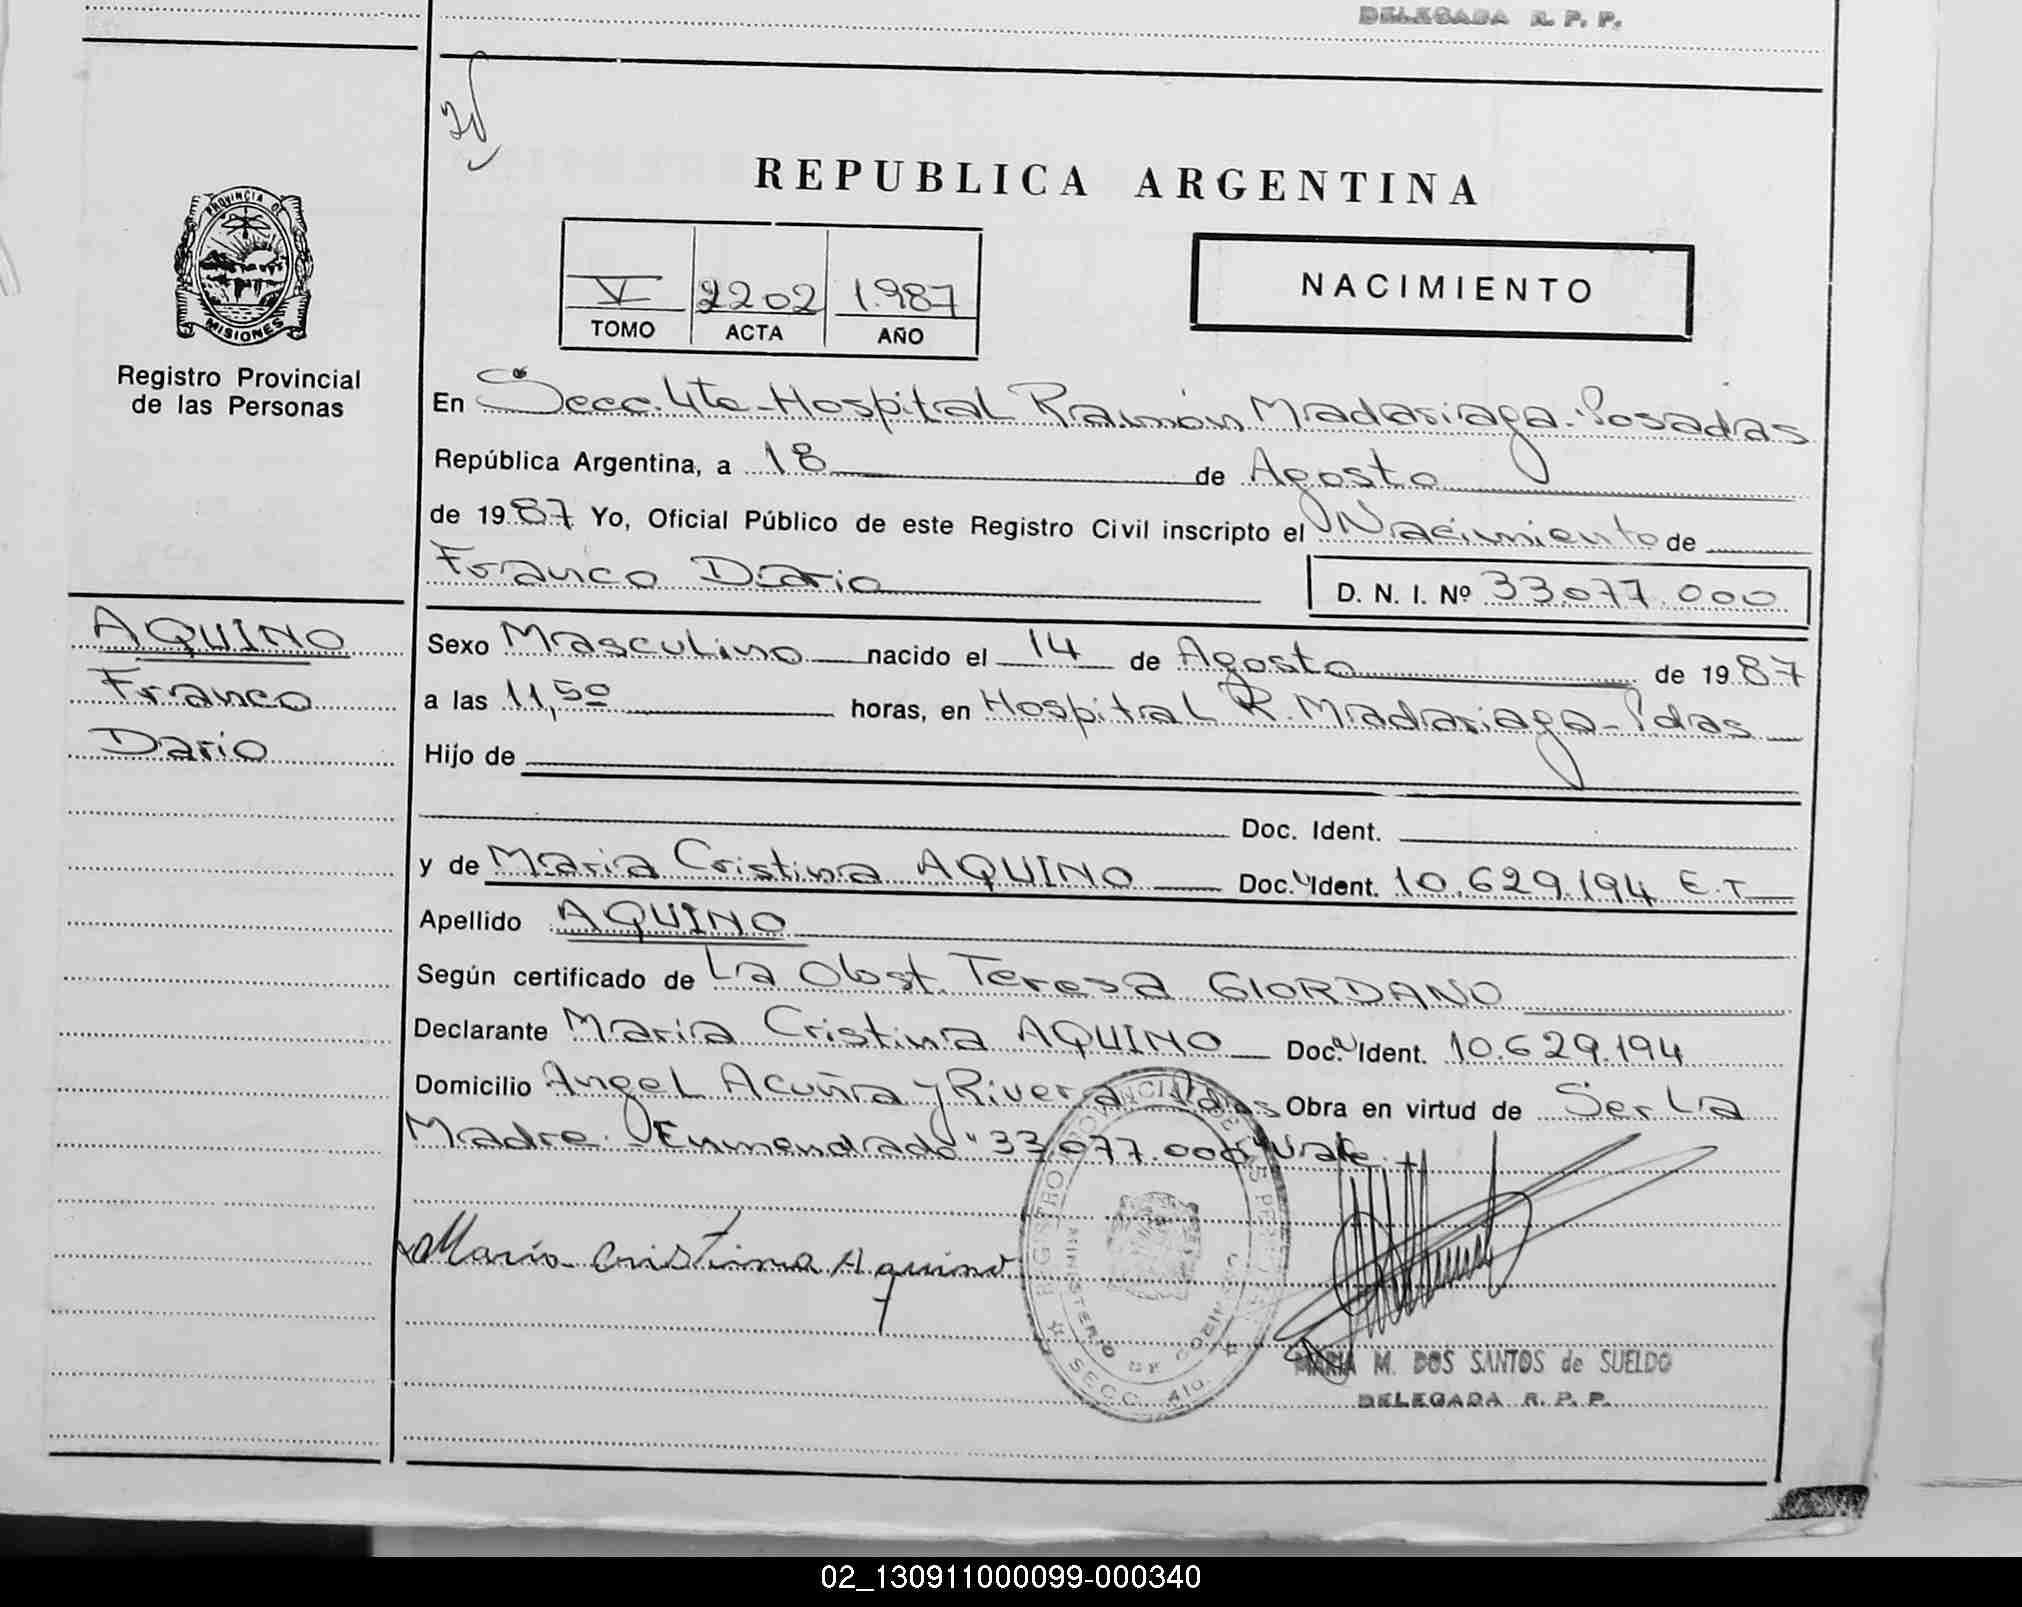 DELEGADA R. P. P.
REPUBLICA ARGENTINA
PROVINCIA DE
MISIONES
Registro Provincial
de las Personas
V 2202 1.987
TOMO ACTA AÑO
NACIMIENTO
En Secc. 4ta - Hospital Ramón Madariaga - Posadas
República Argentina, a 18 de Agosto
de 1987 Yo, Oficial Público de este Registro Civil inscripto el Nacimiento de
Franco Dario
D. N. I. Nº 33.077.000
AQUINO
Franco
Dario
Sexo Masculino nacido el 14 de Agosto de 1987
a las 11,50 horas, en Hospital R. Madariaga - Pdas
Hijo de
Doc. Ident.
y de Maria Cristina AQUINO Doc. Ident. 10.629.194 E.T
Apellido AQUINO
Según certificado de La Obst. Teresa GIORDANO
Declarante Maria Cristina AQUINO Doc. Ident. 10.629.194
Domicilio Angel Acuña y Rivera Pdas Obra en virtud de Ser La
Madre. Enmendrado "33.077.000" Vale.
Maria Cristina Aquino
REGISTRO PROVINCIAL DE LAS PERSONAS
MINISTERIO DE GOBIERNO
SECC. 4ta.
MARIA M. DOS SANTOS de SUELDO
DELEGADA R. P. P.
02_130911000099-000340